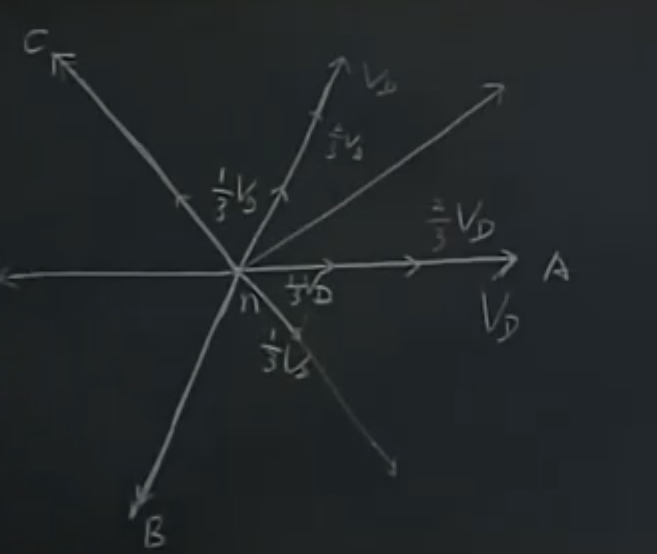 C
V_D
2/3 V_D
1/3 V_D
2/3 V_D
A
1/3 V_D
n
V_D
1/3 V_D
B